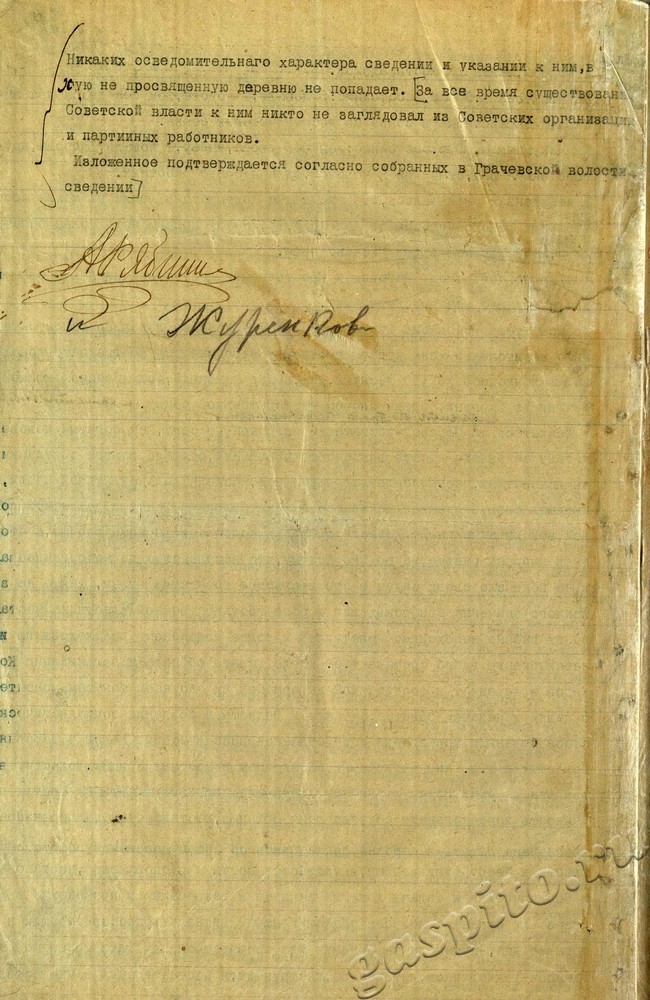 Никаких осведомительнаго характера сведении и указании к ним, в
ую не просвященную даревню не попадает. [За все время существован
Советской власти к ним никто не заглядовал из Советских организаци
и партииных работников.
Изложенное подтверждается согласно собранных в Грачевской волости
сведении]
и Журенков
gaspito.ru